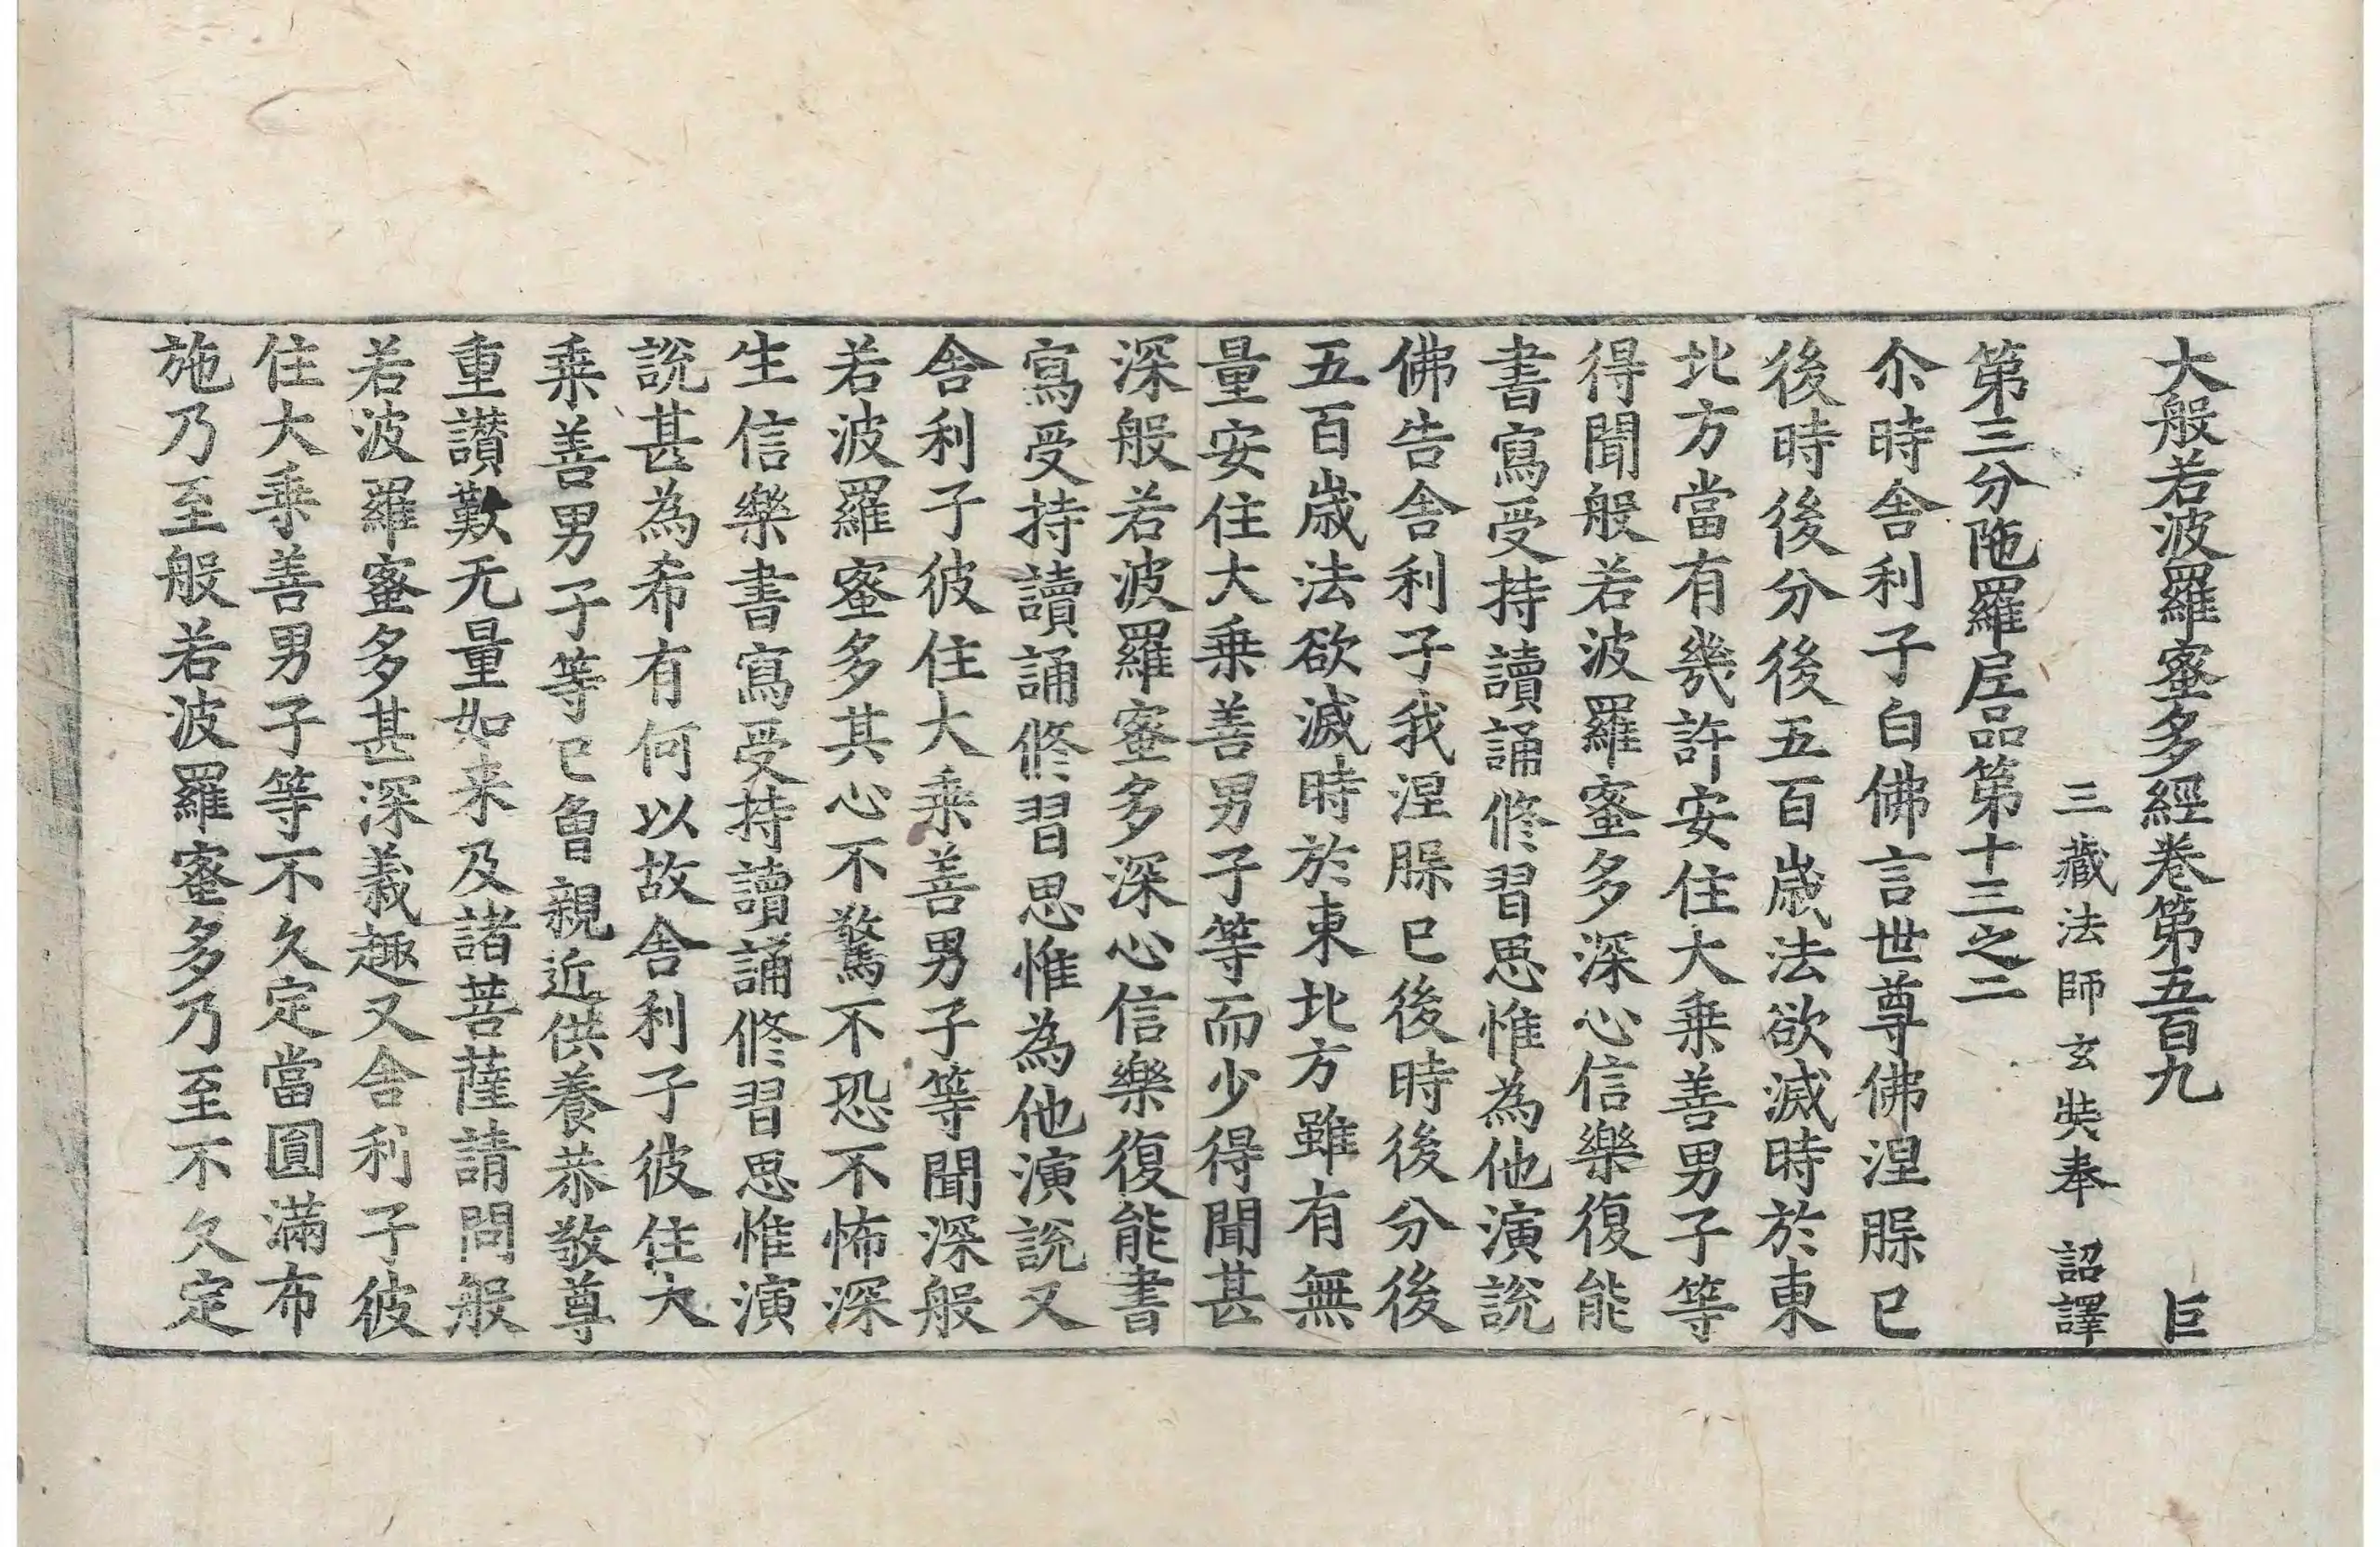 大般若波羅蜜多經卷第五百九 巨
三藏法師玄奘奉 詔譯
第三分陁羅尼品第十三之二
尒時舍利子白佛言世尊佛涅槃已
後時後分後五百歲法欲滅時於東
北方當有幾許安住大乘善男子等
得聞般若波羅蜜多深心信樂復能
書寫受持讀誦修習思惟為他演說
佛告舍利子我涅槃已後時後分後
五百歲法欲滅時於東北方雖有無
量安住大乘善男子等而少得聞甚
深般若波羅蜜多深心信樂復能書
寫受持讀誦修習思惟為他演說又
舍利子彼住大乘善男子等聞深般
若波羅蜜多其心不驚不恐不怖深
生信樂書寫受持讀誦修習思惟演
說甚為希有何以故舍利子彼住大
乘善男子等已曾親近供養恭敬尊
重讃歎无量如来及諸菩薩請問般
若波羅蜜多甚深義趣又舍利子彼
住大乘善男子等不久定當圓滿布
施乃至般若波羅蜜多乃至不久定